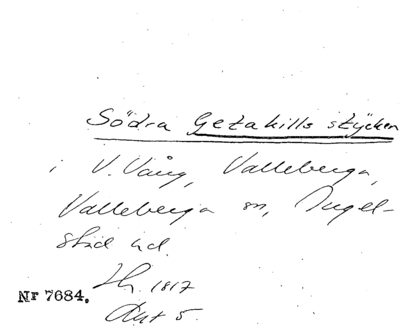 Södra Getakills stycken
i V. Vång, Valleberga,
Valleberga sn, Ingel-
stad hd.
Nr 7684.
1817
Akt 5.